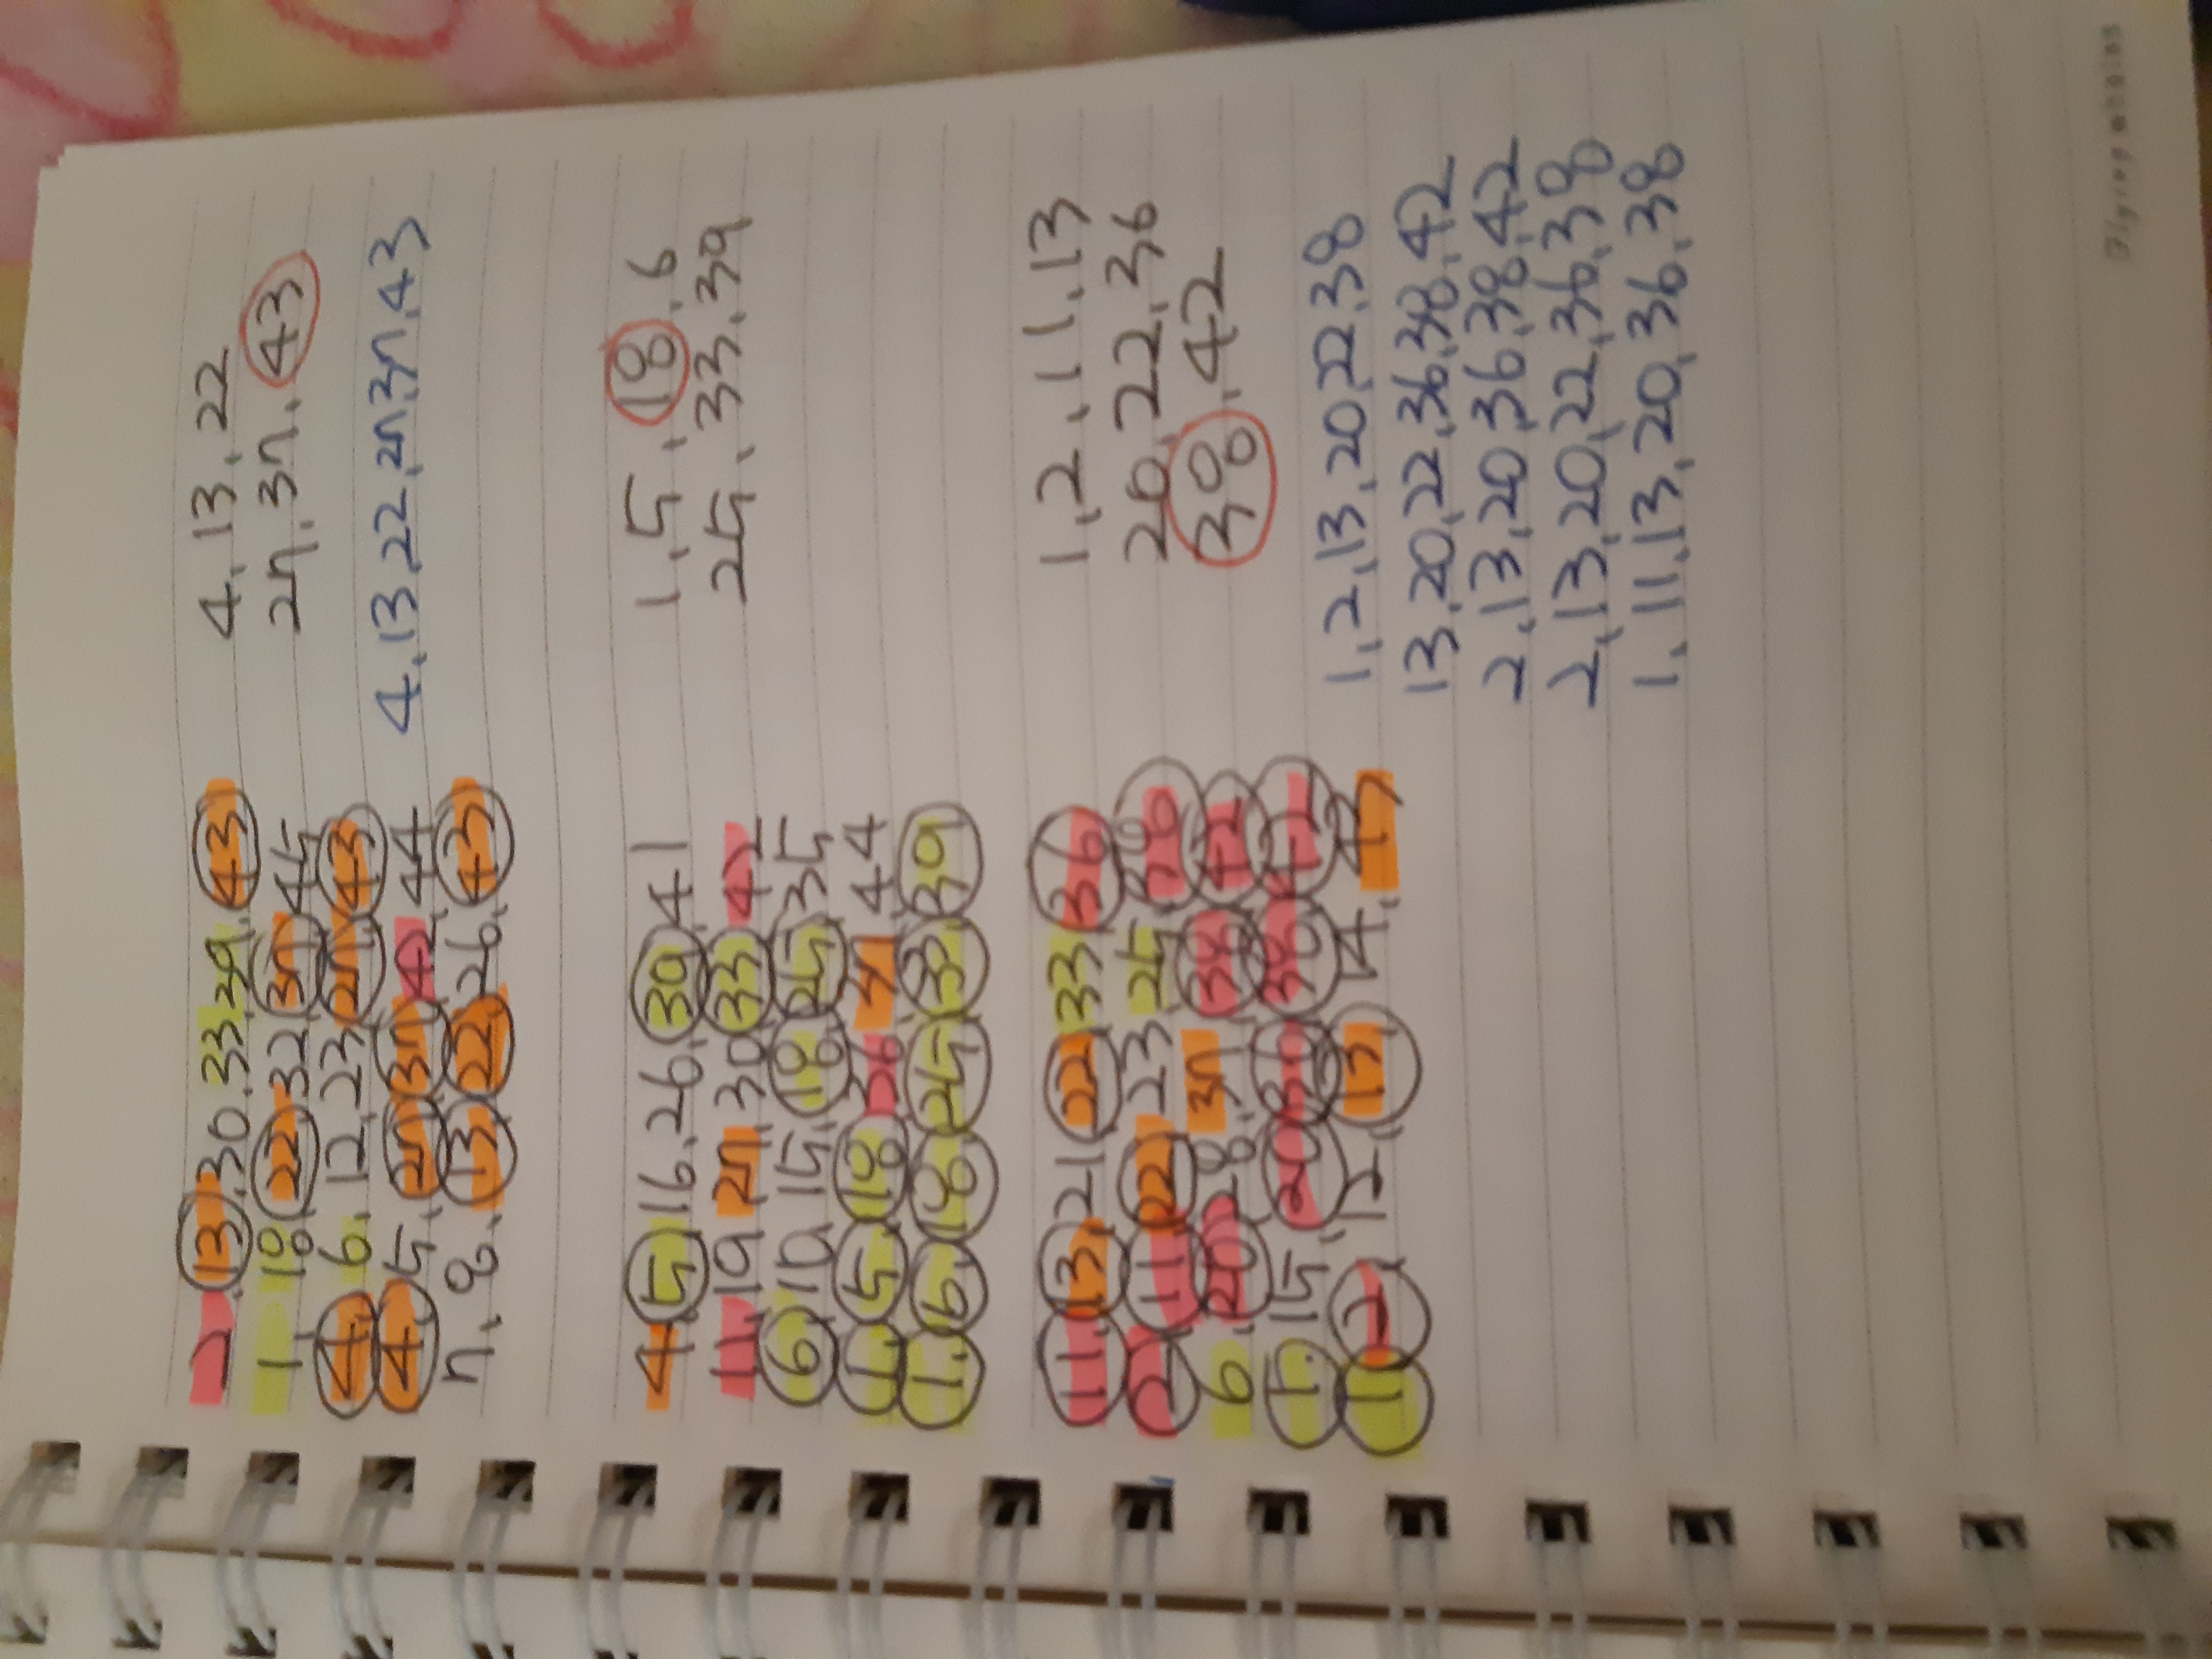 2.13.30.33.39.43
1.18.22.32.37.45
4.6.12.23.27.43
4.5.27.37.42.44
7.8.13.22.26.43
4.13.22
27.37.43
4.13.22.27.37.43
4.5.16.26.39.41
11.19.27.30.33.42
6.10.15.18.25.35
1.5.18.36.37.44
1.6.18.25.33.39
1.5.18.6
25.33.39
11.13.21.22.33.36
2.11.22.23.25.38
6.20.28.37.38.42
1.15.20
1.2.12.13.14
1.2.11.13
20.22.36
38.42
1.2.13.20.22.38
13.20.22.36.38.42
2.13.20.36.38.42
2.13.20.22.36.38
1.11.13.20.36.38